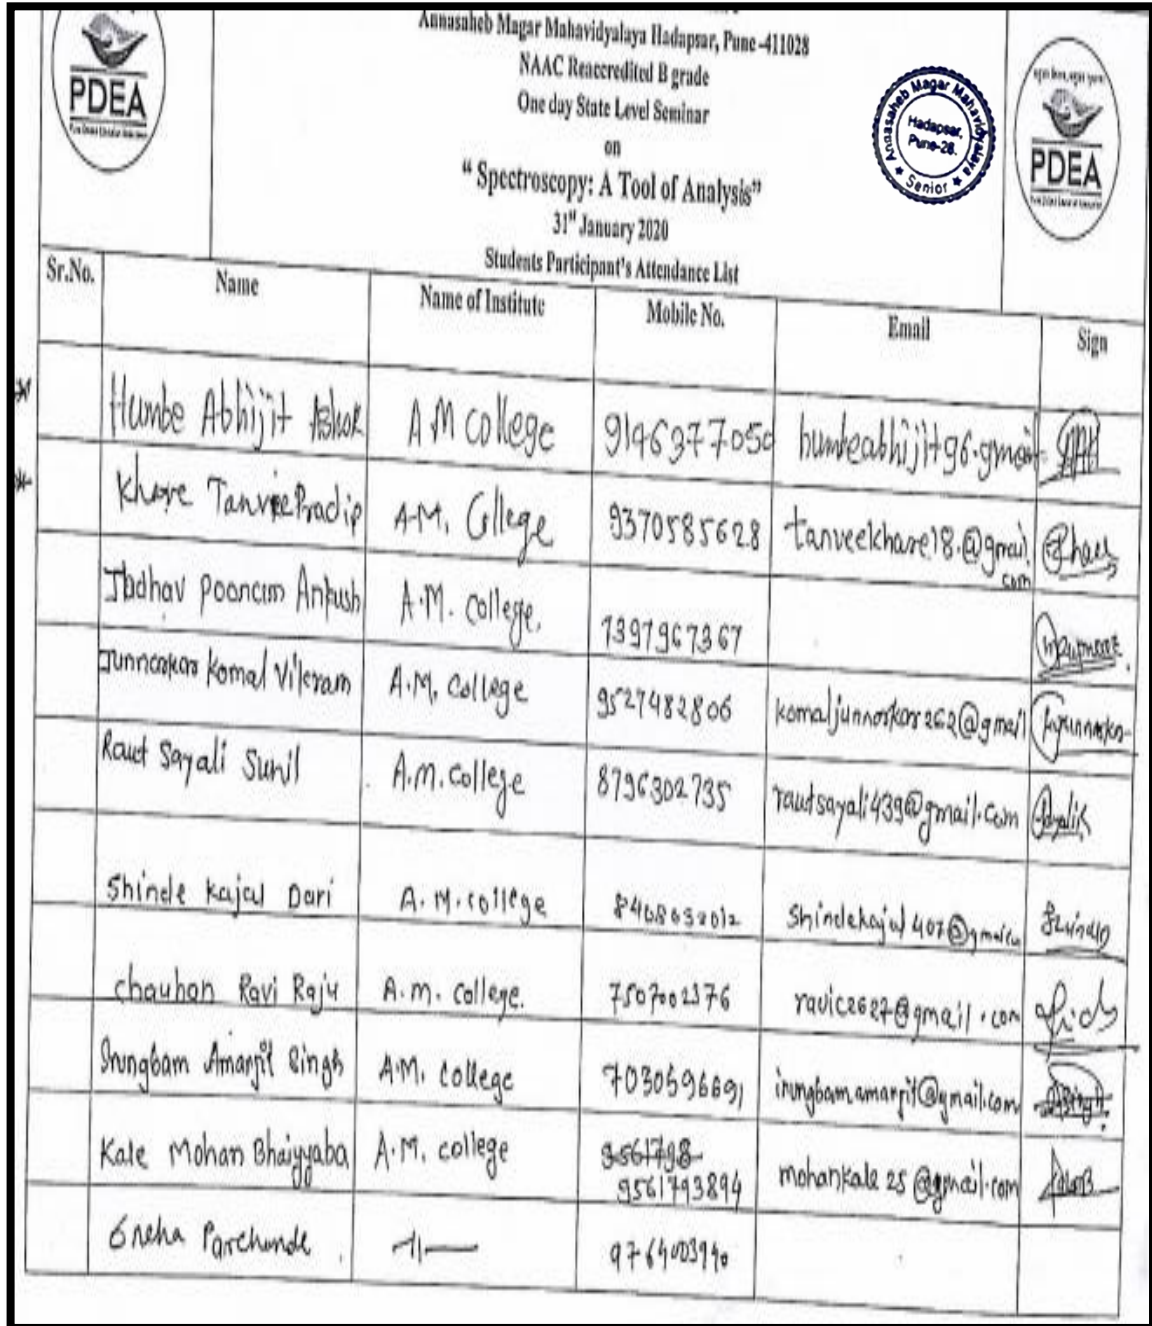 Annasaheb Magar Mahavidyalaya Hadapsar, Pune-411028
NAAC Reaccredited B grade
One day State Level Seminar
on
“ Spectroscopy: A Tool of Analysis”
31st January 2020
Students Participant's Attendance List
PDEA
Annasaheb Magar Mahavidyalaya
Hadapsar,
Pune-28.
★ Senior ★
PDEA
Sr.No. Name Name of Institute Mobile No. Email Sign
Humbe Abhijit Ashok A M College 9146377050 humbeabhijit96.gmail
Khare Tanvee Pradip A.M. College 9370585628 tanveekhare18.@gmail.
com
Jadhav Poonam Ankush A.M. College. 7397967367
Junnarkar Komal Vikram A.M. College 9527482806 komaljunnarkar262@gmail
Raut Sayali Sunil A.M. College 8796302735 rautsayali439@gmail.com
Shinde Kajal Dari A.M. college shindekajal407@gmail
chauhan Ravi Raju A.m. college. 7507002376 ravic2627@gmail.com
Irungbam Amarjit Singh A.M. college 7030596691 irungbamamarjit@gmail.com
Kale Mohan Bhaiyyaba A.M. college 9561798
9561793894 mohankale25@gmail.com
Sneha Parchande —11— 9764003940